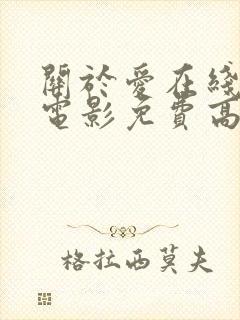 關於愛在綫
電影免費高
格拉西莫夫